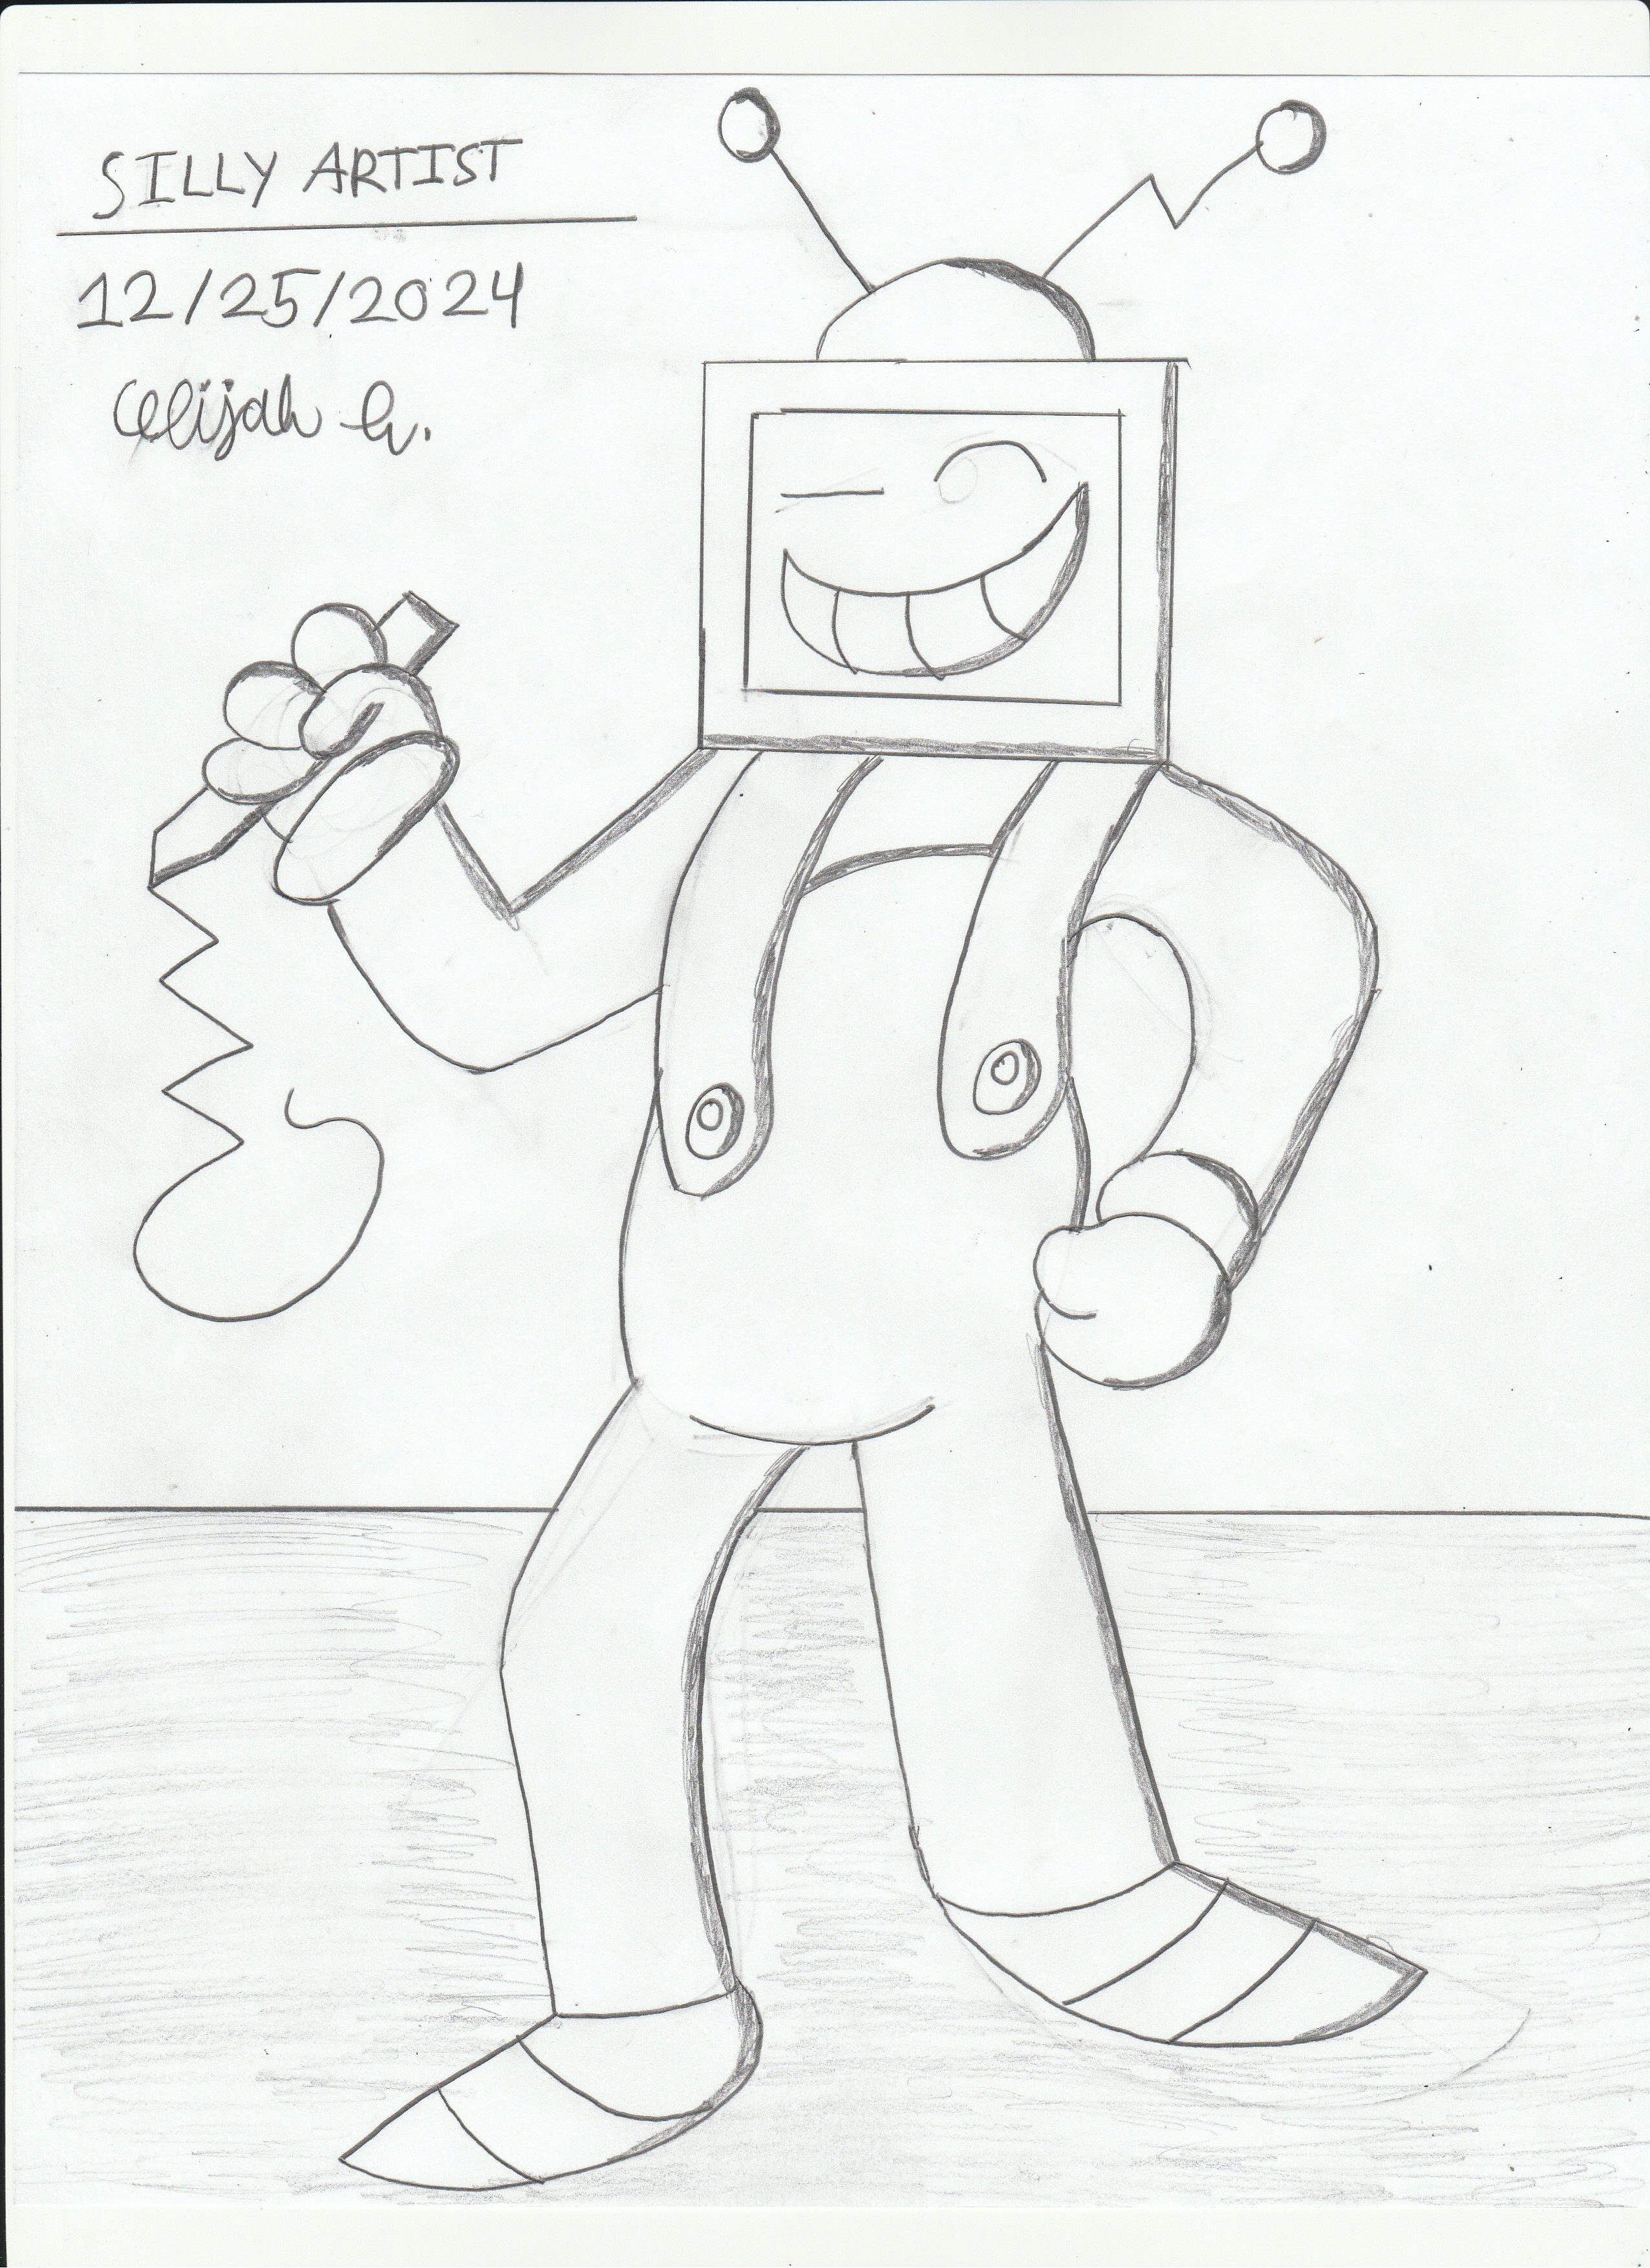 SILLY ARTIST
12/25/2024
Elijah